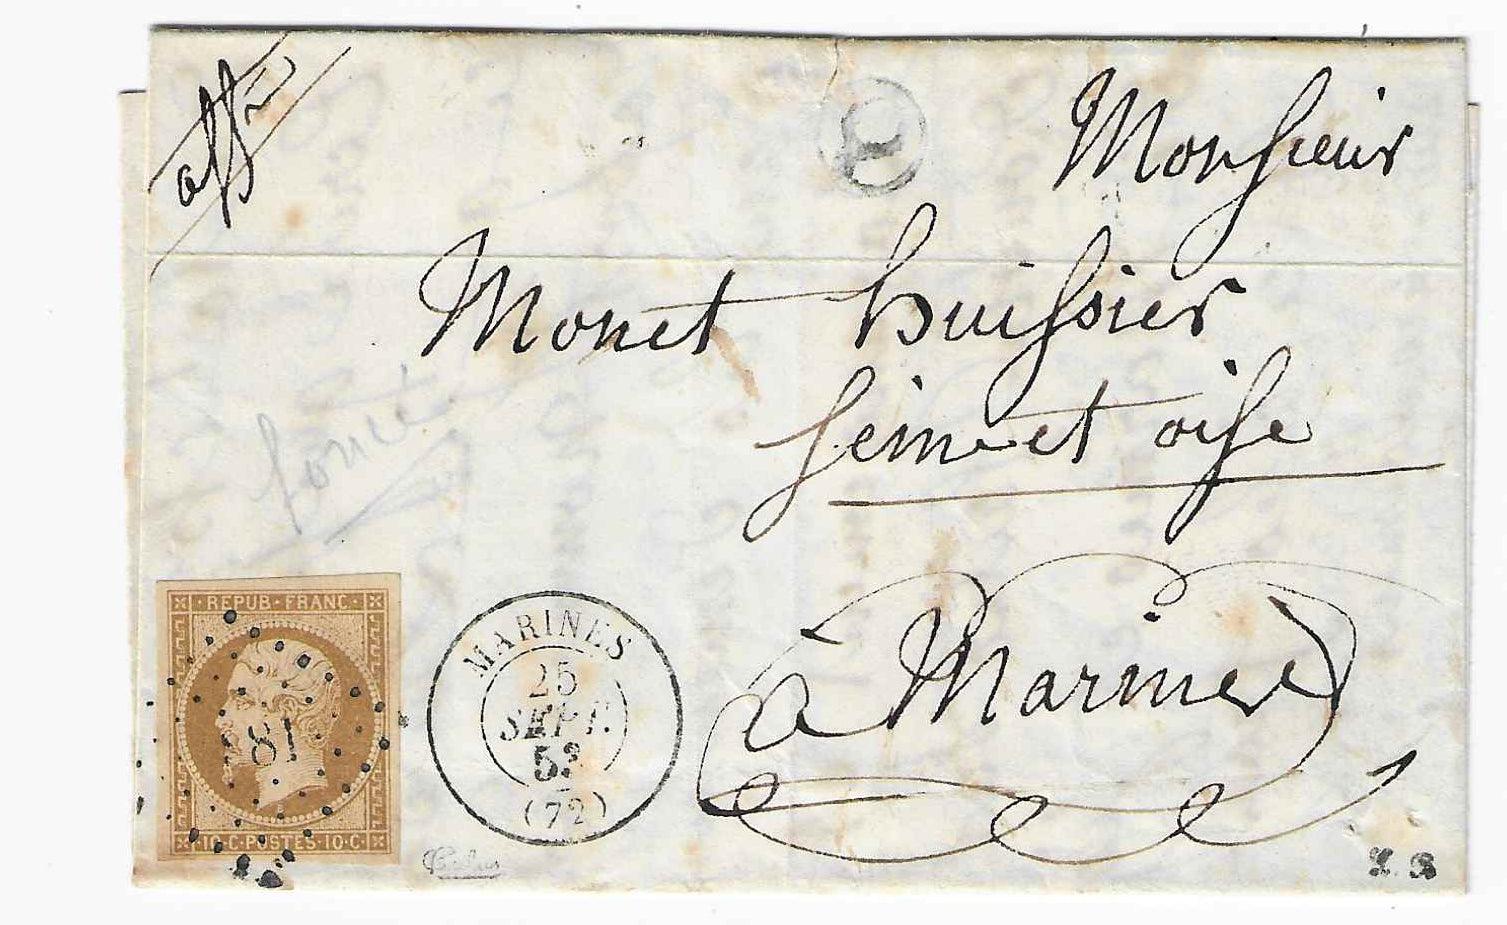 aff
Monsieur
Monet huissier
Seine et oise
foncé
à Marines
REPUB · FRANC ·
10 · C · POSTES · 10 · C
MARINES
25
SEPT.
53
(72)